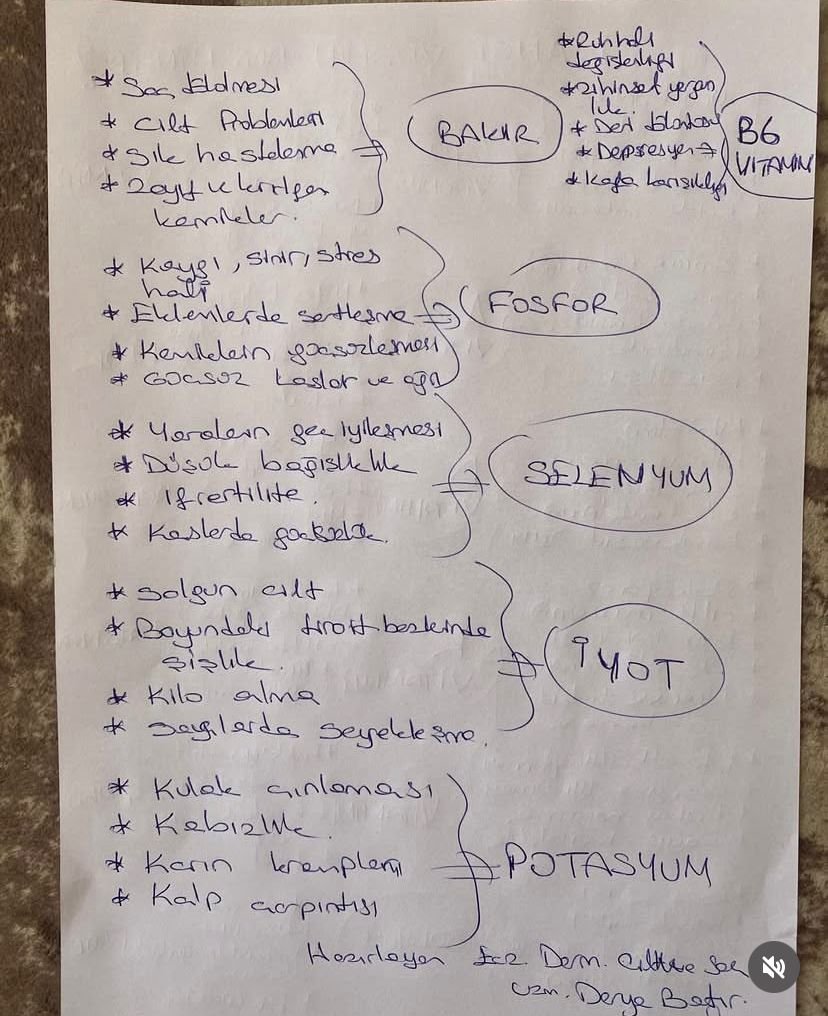 * Saç Dökülmesi
* Cilt Problemleri
* Sık hastalanma
* Zayıf ve kırılgan
kemikler.
BAKIR
* Ruh hali
değişikliği
* Zihinsel yorgun
luk.
* Deri
* Depresyon
* Kafa karışıklığı
B6
VİTAMİNİ
* Kaygı, sinir, stres
hali
* Eklemlerde sertleşme
* Kemiklerin güçsüzleşmesi
* Güçsüz kaslar ve ağrı
FOSFOR
* Yaraların geç iyileşmesi
* Düşük bağışıklık
* Ifrertilite.
* Kaslarda güçsüzlük.
SELENYUM
* Solgun cilt
* Boyundaki tiroit bezlerinde
şişlik.
* Kilo alma
* Saçlarda seyrekleşme.
İYOT
* Kulak çınlaması
* Kabızlık.
* Karın krampları
* Kalp çarpıntısı
POTASYUM
Hazırlayan Ecz. Derm. Cilt ve Saç
Uzm. Derya